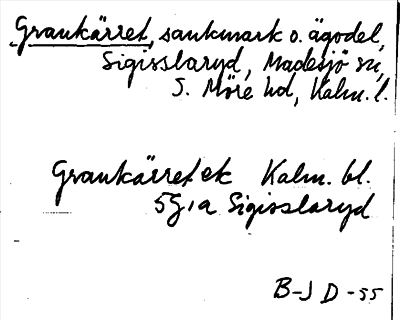 Grankärret, sankmark o. ägodel,
Sigisslaryd, Madesjö sn,
S. Möre hd, Kalm. l.
Grankärret ek Kalm. bl.
5G, a Sigisslaryd
B-J D -55